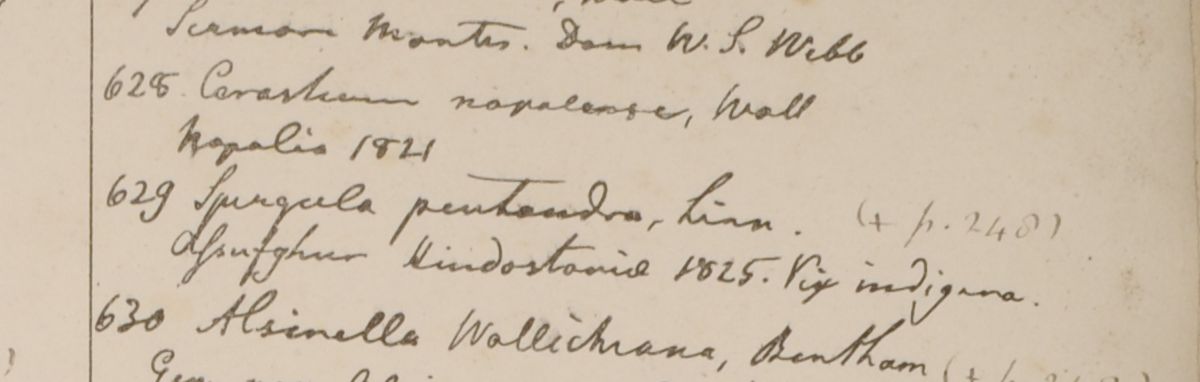 Sirmore Montes. Dom W. S. Webb
628 Cerastium napalense, Wall
Napalia 1821
629 Spergula pentandra, Linn. (+ p. 248)
Assufghur Hindostaniæ 1825. Vix indigena.
630 Alsinella Wallichiana, Bentham (+ p.